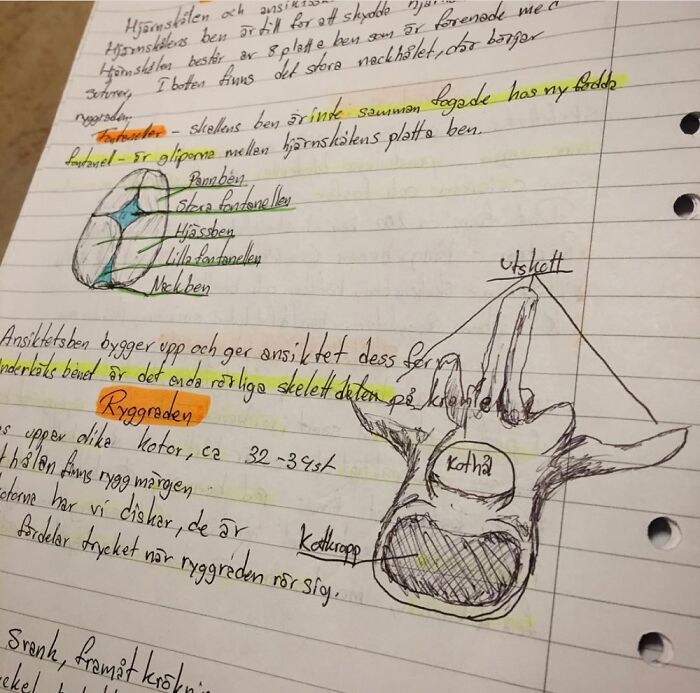 Hjärnskålen och ansikts
Hjärnskålens ben är till för att skydda hjär
Hjärnskålen består av 8 platta ben som är förenade med
suturer, I botten finns det stora nackhålet, där börjar
ryggraden.
Fontaneler - skallens ben är inte sammanfogade hos nyfödda
fontanel - är gliporna mellan hjärnskålens platta ben.
Pannben
Stora fontanellen
Hjässben
Lilla fontanellen
Nackben
Utskott
Ansiktetsben bygger upp och ger ansiktet dess form
nderkäksbenet är det enda rörliga skelettdelen på kraniet
Ryggraden
s upper olika kotor, ca 32-34st
thålan finns ryggmärgen
Kothål
kotorna har vi diskar, de är
Kotkropp
fördelar trycket när ryggraden rör sig.
Svank, framåt krökni